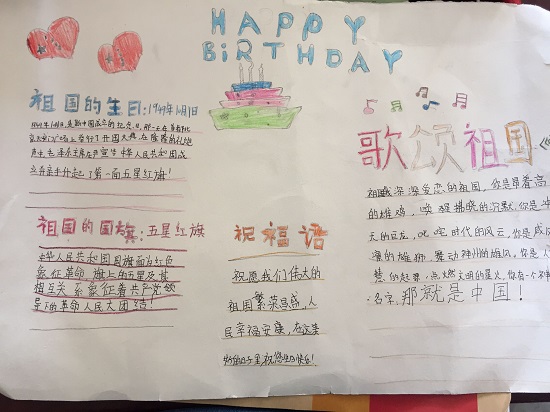 HAPPY
BiRTHDAY
祖国的生日:1949年10月1日
1949年10月1日,是新中国成立的纪念日。那一天在首都北
京天安门广场上举行了开国大典,在隆隆的礼炮
声中,毛泽东主席庄严宣告中华人民共和国成
立并亲手升起了第一面五星红旗!
祖国的国旗:五星红旗
中华人民共和国国旗面为红色
象征革命,旗上的五星及其
相互关系象征着共产党领
导下的革命人民大团结!
祝福语
祝愿我们伟大的
祖国繁荣昌盛,人
民幸福安康,在这美
好的日子里,祝您生日快乐!
歌颂祖国
祖国,我深深爱恋的祖国,你是昂着高
的雄鸡,唤醒拂晓的沉默,你是冲
天的巨龙,叱咤时代的风云,你是威
凛的雄狮,舞动神州的雄风,你是人
慧的起源,点燃文明的星火,你有一个神
名字,那就是中国!